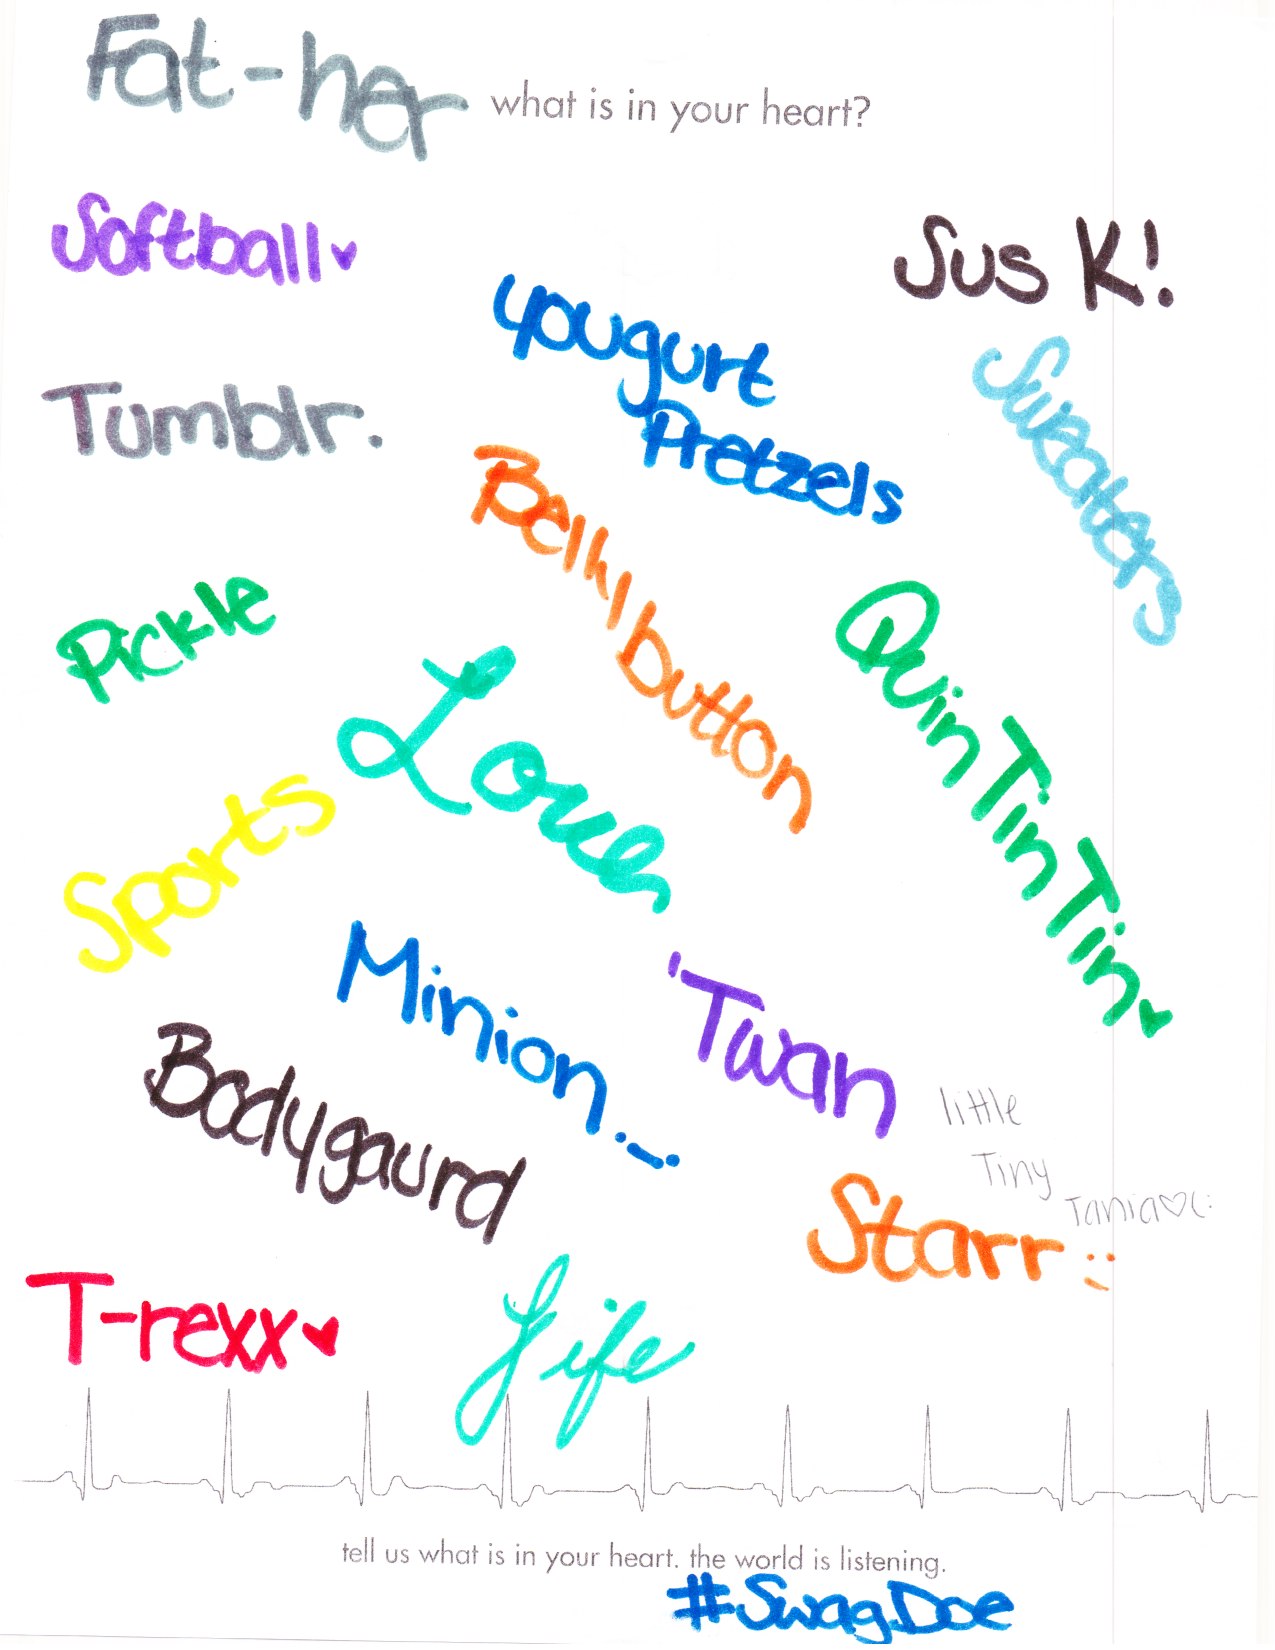 Fat-her
what is in your heart?
Softball
Sus K!
yougurt
Pretzels
Sweaters
Tumblr.
Belly button
Pickle
QuinTinTin
Love
Sports
Minion.
'Twan
Bodygaurd
little
Tiny
Tania♡(:
Starr :)
T-rexx♥
Life
tell us what is in your heart. the world is listening.
#SwagDoe